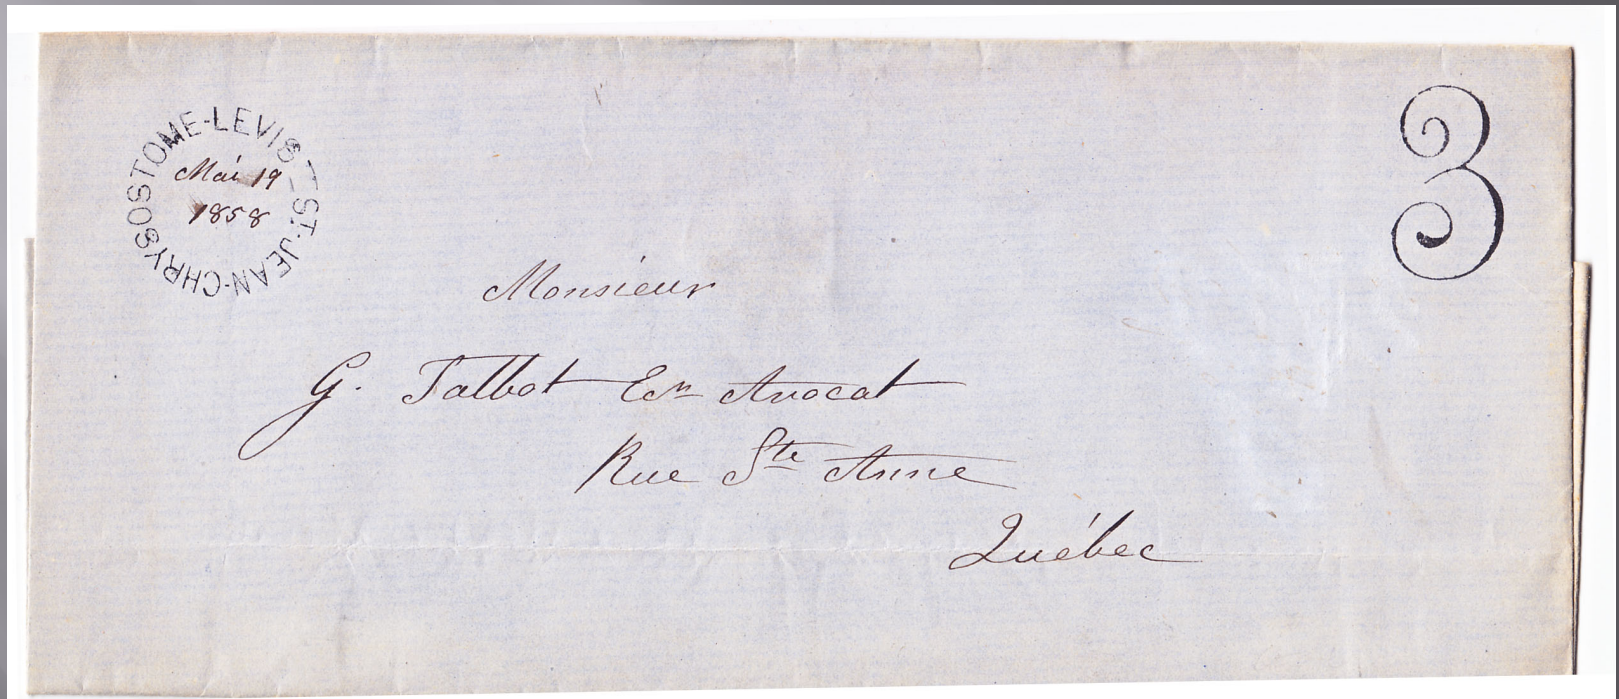 ST-JEAN-CHRYSOSTOME-LEVIS
Mai 19
1858
3
Monsieur
G. Talbot Ecr Avocat
Rue Ste Anne
Québec